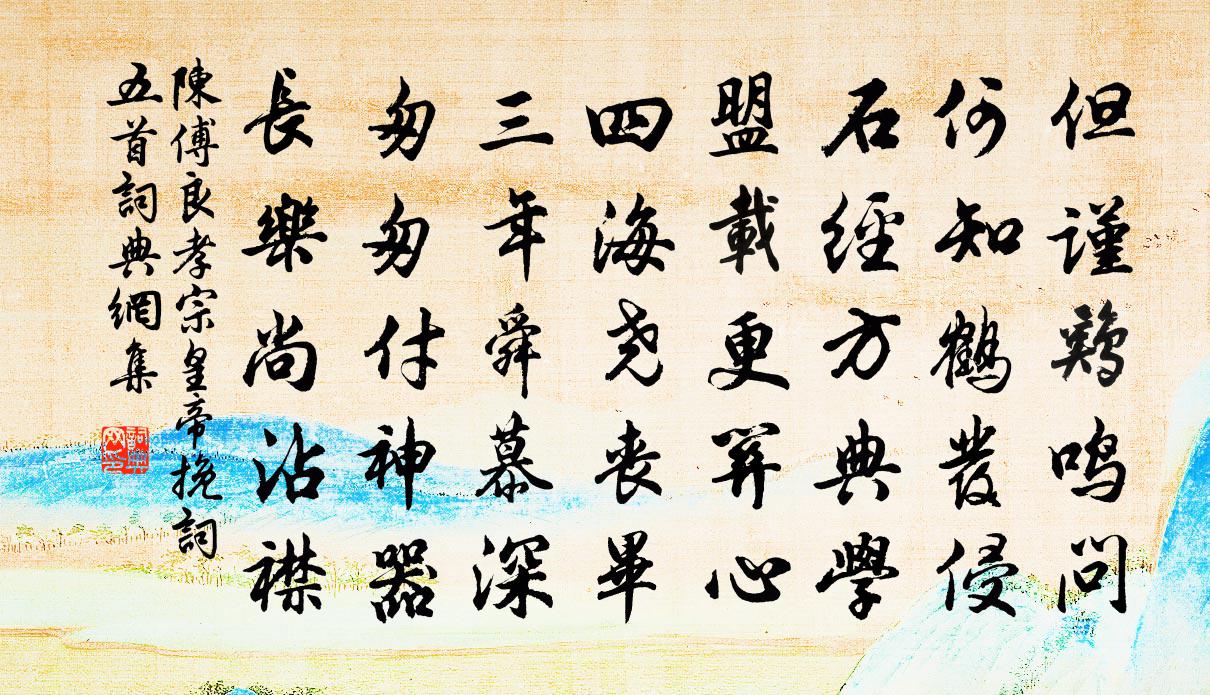 但謹鷄鳴問
何知鶴發侵
石經方典學
盟載更心
四海堯喪畢
三年舜慕深
匆匆付神器
長樂尚沾襟
陳傅良孝宗皇帝挽詞
五首詞典網集